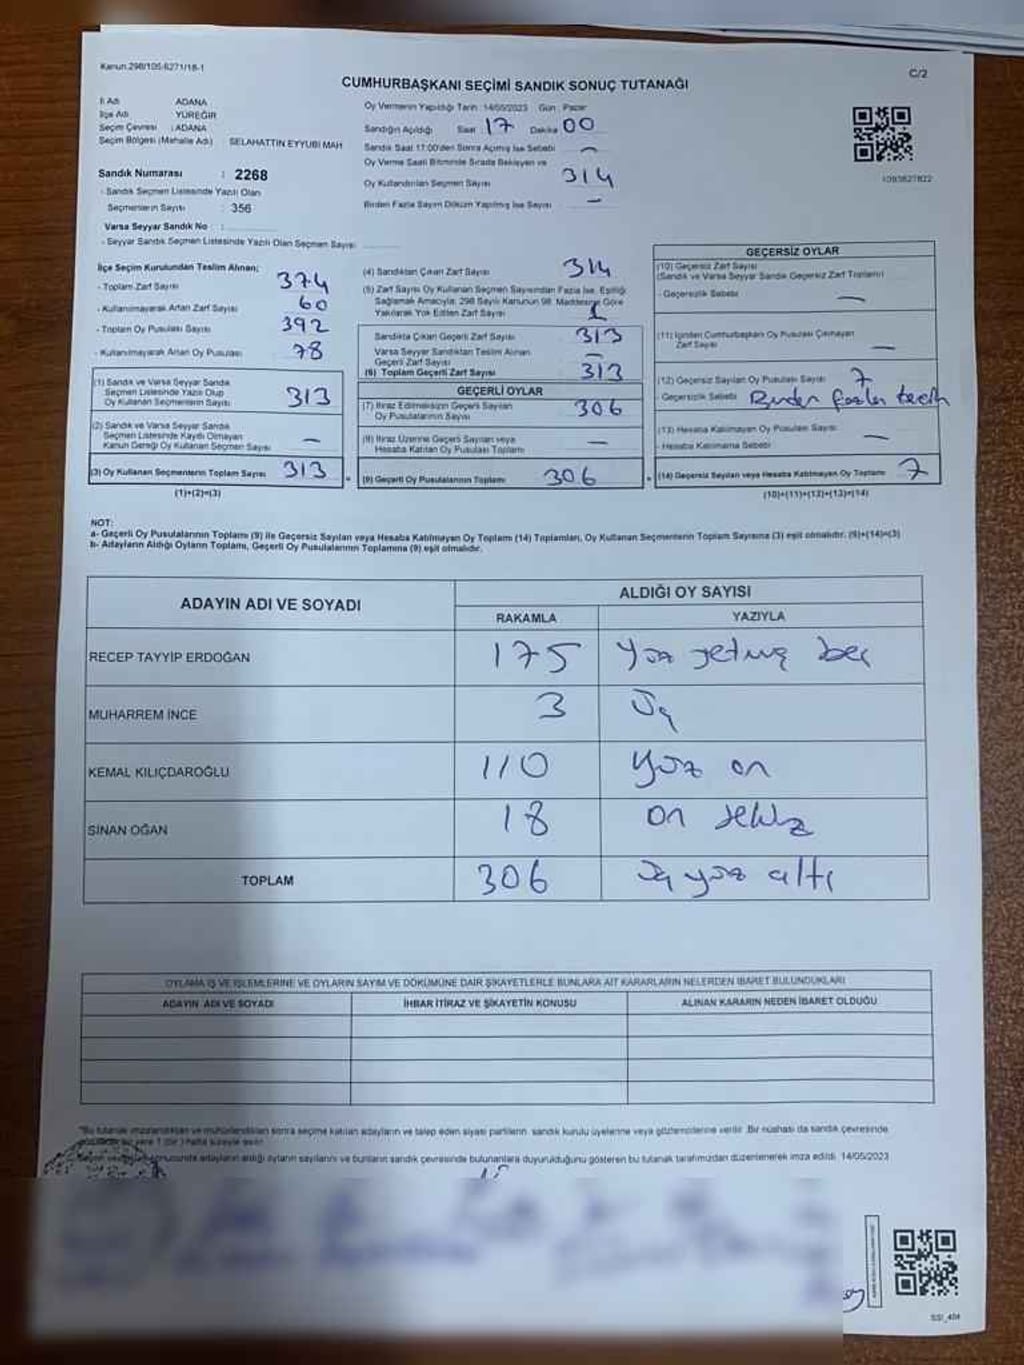 Kanun:298/105-6271/18-1
C/2
CUMHURBAŞKANI SEÇİMİ SANDIK SONUÇ TUTANAĞI
İl Adı ADANA
İlçe Adı YÜREĞİR
Seçim Çevresi : ADANA
Seçim Bölgesi (Mahalle Adı) SELAHATTİN EYYUBİ MAH
Sandık Numarası : 2268
- Sandık Seçmen Listesinde Yazılı Olan
Seçmenlerin Sayısı : 356
Varsa Seyyar Sandık No :
- Seyyar Sandık Seçmen Listesinde Yazılı Olan Seçmen Sayısı
Oy Vermenin Yapıldığı Tarih : 14/05/2023 Gün : Pazar
Sandığın Açıldığı Saat 17 Dakika 00
Sandık Saat 17:00'den Sonra Açılmış İse Sebebi —
Oy Verme Saati Bitiminde Sırada Bekleyen ve
Oy Kullandırılan Seçmen Sayısı 314
Birden Fazla Sayım Döküm Yapılmış İse Sayısı —
1093627822
İlçe Seçim Kurulundan Teslim Alınan;
- Toplam Zarf Sayısı 374
- Kullanılmayarak Artan Zarf Sayısı 60
- Toplam Oy Pusulası Sayısı 392
- Kullanılmayarak Artan Oy Pusulası 78
(1) Sandık ve Varsa Seyyar Sandık
Seçmen Listesinde Yazılı Olup
Oy Kullanan Seçmenlerin Sayısı 313
(2) Sandık ve Varsa Seyyar Sandık
Seçmen Listesinde Kayıtlı Olmayan
Kanun Gereği Oy Kullanan Seçmen Sayısı —
(3) Oy Kullanan Seçmenlerin Toplam Sayısı 313
(1)+(2)=(3)
(4) Sandıktan Çıkan Zarf Sayısı 314
(5) Zarf Sayısı Oy Kullanan Seçmen Sayısından Fazla İse, Eşitliği
Sağlamak Amacıyla, 298 Sayılı Kanunun 98. Maddesine Göre
Yakılarak Yok Edilen Zarf Sayısı 1
Sandıkta Çıkan Geçerli Zarf Sayısı 313
Varsa Seyyar Sandıktan Teslim Alınan
Geçerli Zarf Sayısı —
(6) Toplam Geçerli Zarf Sayısı 313
GEÇERLİ OYLAR
(7) İtiraz Edilmeksizin Geçerli Sayılan
Oy Pusulalarının Sayısı 306
(8) İtiraz Üzerine Geçerli Sayılan veya
Hesaba Katılan Oy Pusulası Toplamı —
(9) Geçerli Oy Pusulalarının Toplamı 306
GEÇERSİZ OYLAR
(10) Geçersiz Zarf Sayısı
(Sandık ve Varsa Seyyar Sandık Geçersiz Zarf Toplamı)
- Geçersizlik Sebebi —
(11) İçinden Cumhurbaşkanı Oy Pusulası Çıkmayan
Zarf Sayısı —
(12) Geçersiz Sayılan Oy Pusulası Sayısı 7
- Geçersizlik Sebebi Birden fazla tercih
(13) Hesaba Katılmayan Oy Pusulası Sayısı —
- Hesaba Katılmama Sebebi
(14) Geçersiz Sayılan veya Hesaba Katılmayan Oy Toplamı 7
(10)+(11)+(12)+(13)=(14)
NOT:
a- Geçerli Oy Pusulalarının Toplamı (9) ile Geçersiz Sayılan veya Hesaba Katılmayan Oy Toplamı (14) Toplamları, Oy Kullanan Seçmenlerin Toplam Sayısına (3) eşit olmalıdır. (9)+(14)=(3)
b- Adayların Aldığı Oyların Toplamı, Geçerli Oy Pusulalarının Toplamına (9) eşit olmalıdır.
ADAYIN ADI VE SOYADI
ALDIĞI OY SAYISI
RAKAMLA YAZIYLA
RECEP TAYYİP ERDOĞAN 175 Yüz yetmiş beş
MUHARREM İNCE 3 Üç
KEMAL KILIÇDAROĞLU 110 Yüz on
SİNAN OĞAN 18 on sekiz
TOPLAM 306 üç yüz altı
OYLAMA İŞ VE İŞLEMLERİNE VE OYLARIN SAYIM VE DÖKÜMÜNE DAİR ŞİKAYETLERLE BUNLARA AİT KARARLARIN NELERDEN İBARET BULUNDUKLARI
ADAYIN ADI VE SOYADI İHBAR İTİRAZ VE ŞİKAYETİN KONUSU ALINAN KARARIN NEDEN İBARET OLDUĞU
"Bu tutanak imzalandıktan ve mühürlendikten sonra seçime katılan adayların ve talep eden siyasi partilerin, sandık kurulu üyelerine veya gözlemcilerine verilir. Bir nüshası da sandık çevresinde
bir yere 1 (bir) hafta süreyle asılır.
sonucunda adayların aldığı oyların sayılarını ve bunların sandık çevresinde bulunanlara duyurulduğunu gösteren bu tutanak tarafımızdan düzenlenerek imza edildi. 14/05/2023
SSI_404